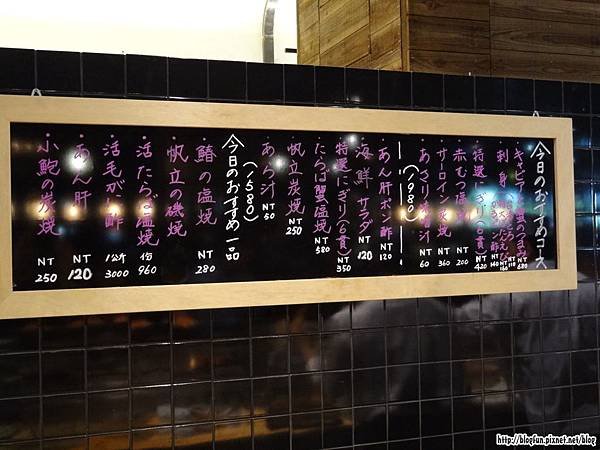 今日のおすすめコース
キャビアと蟹のつまみ NT 680
刺身
NT 110
NT 160
NT 140
特選にぎり(6貫) NT 420
赤むつ塩焼 NT 200
サーロイン炭焼 NT 360
あさり味噌汁 NT 60
(1980)
あん肝ポン酢 NT 120
海鮮サラダ NT 120
特選にぎり(6貫) NT 350
たらば蟹塩焼 NT 580
帆立炭焼 NT 250
あら汁 NT 60
(1580)
今日のおすすめ一品
鰆の塩焼 NT 280
帆立の磯焼
活たらば塩焼 均 960
活毛がに酢 1公斤 3000
あん肝 NT 120
小鮑の炭焼 NT 250
http://blogfun.pixnet.net/blog